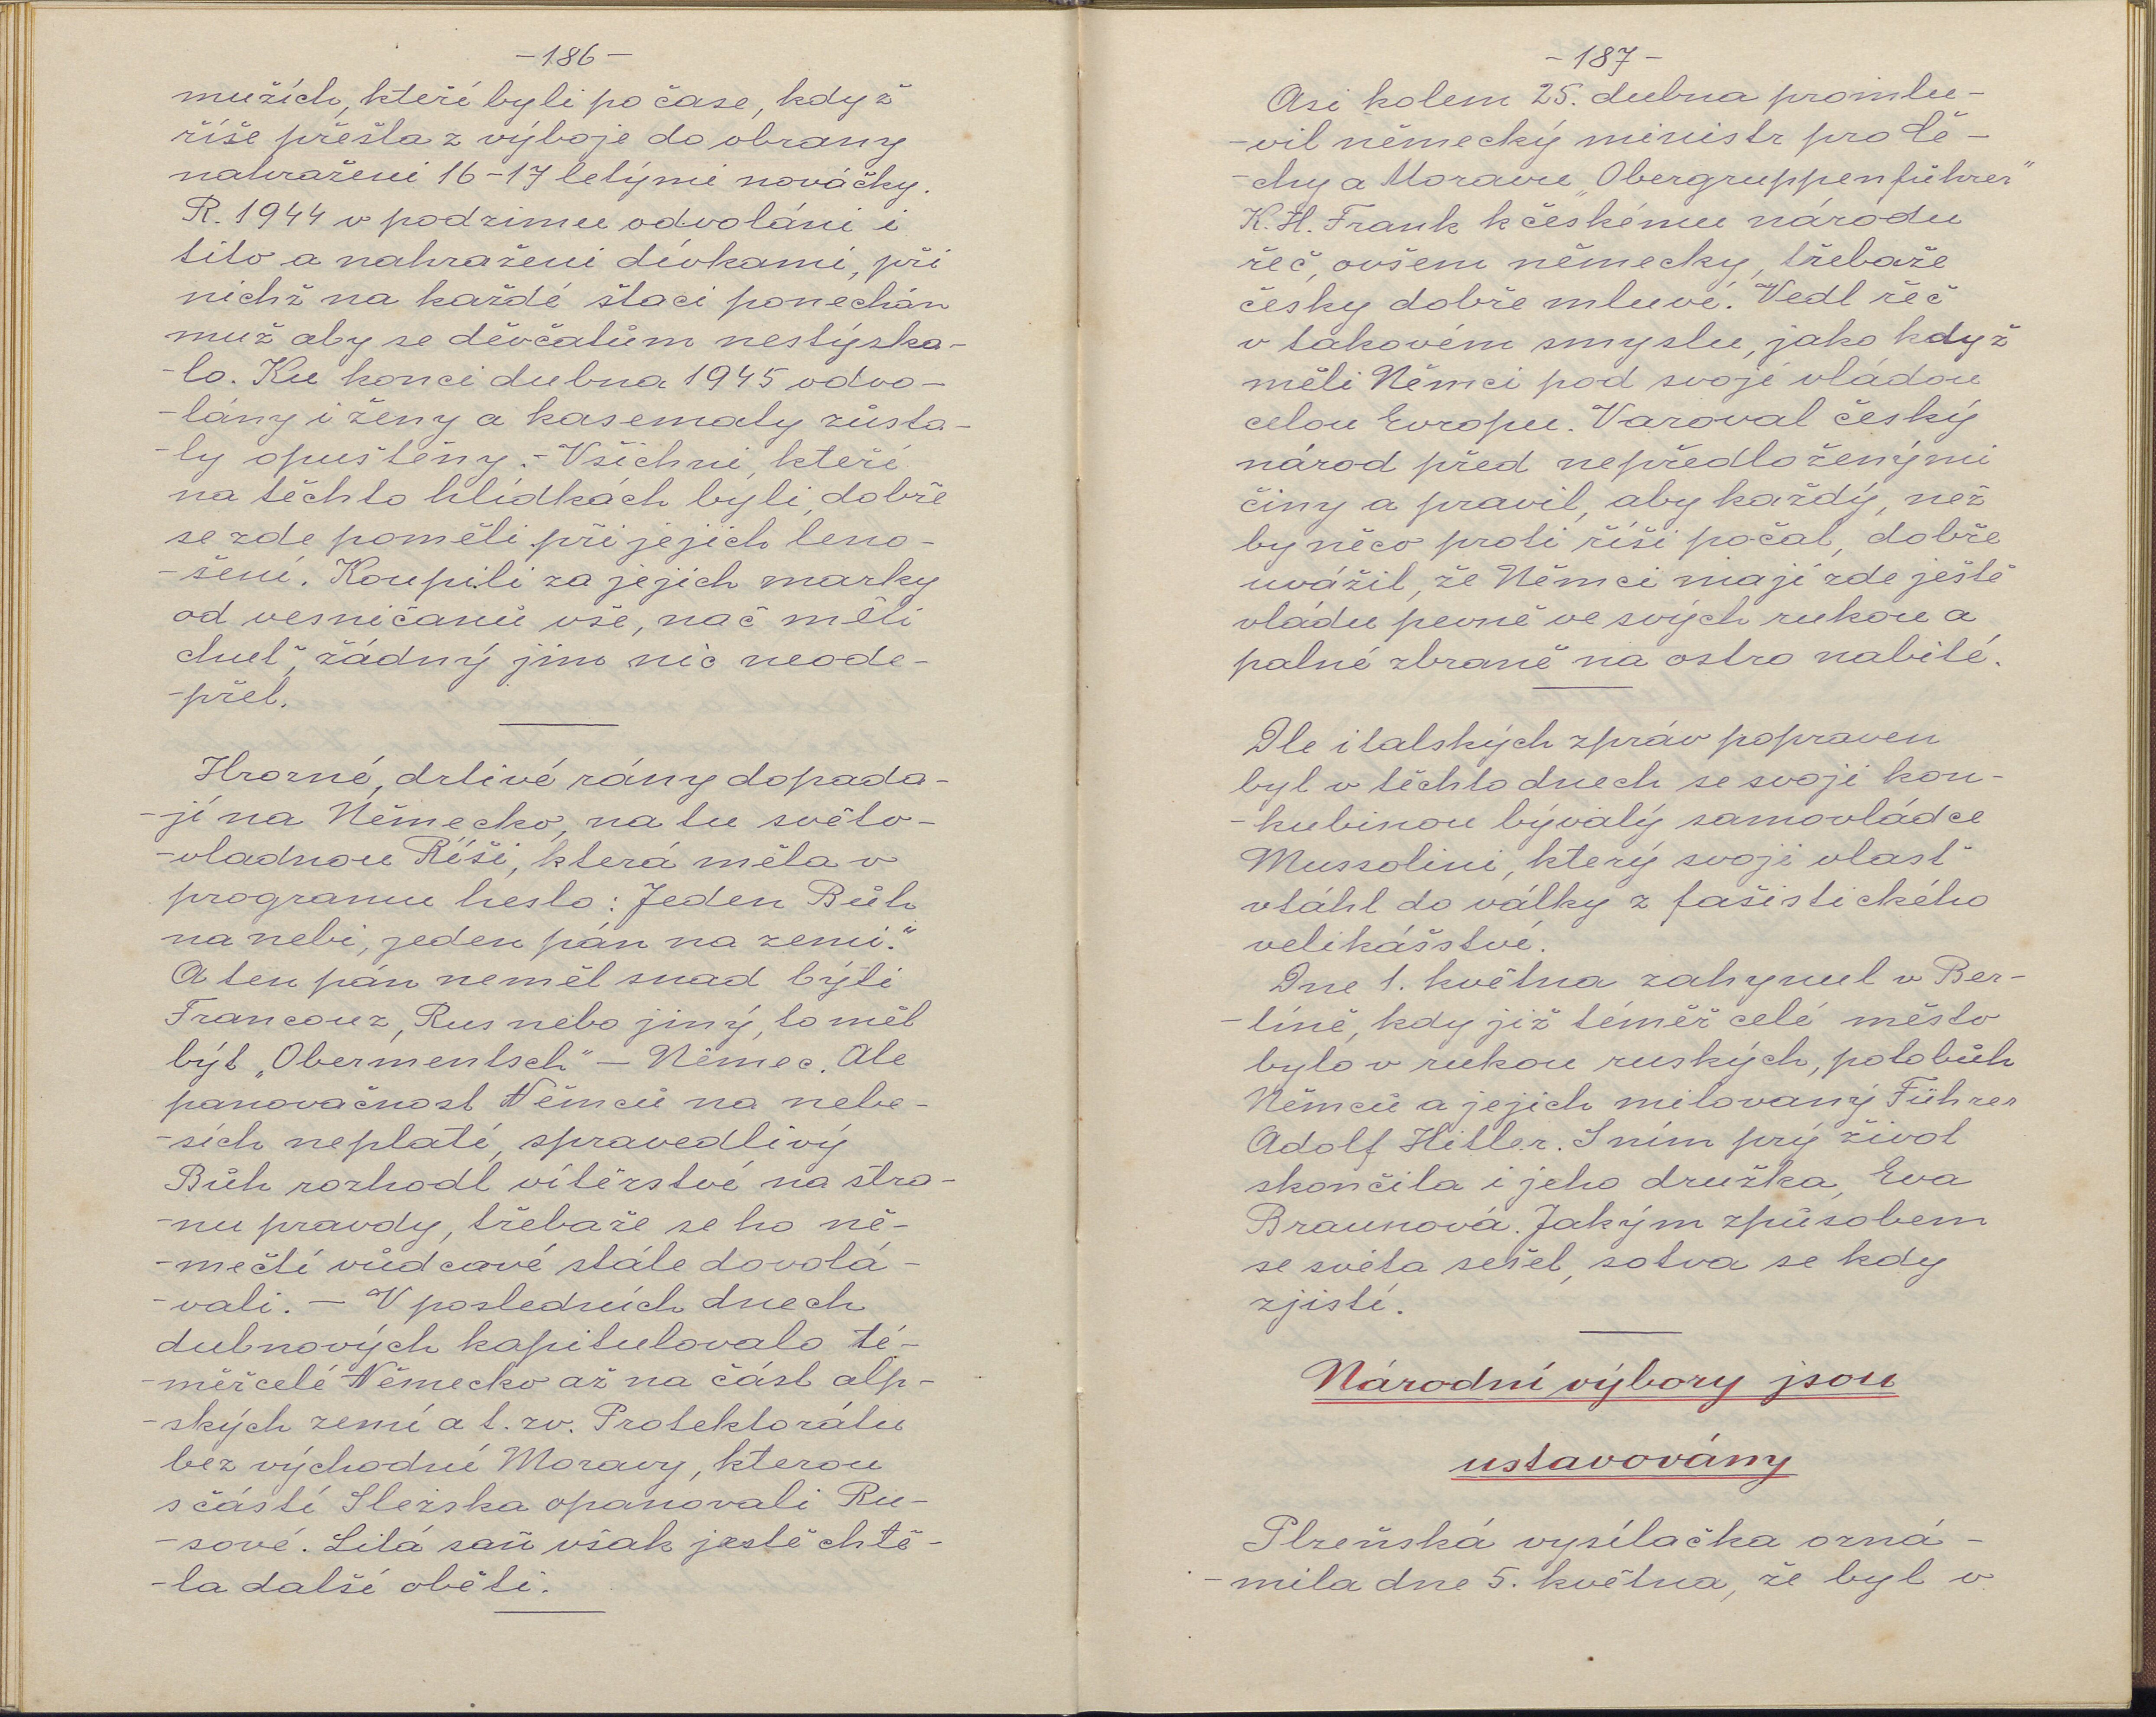 -186-
mužích, kteří byli po čase, když
říše přešla z výboje do obrany
nahraženi 16-17 letými nováčky.
R. 1944 v podzimu odvoláni i
tito a nahraženi dívkami, při
nichž na každé štaci ponechán
muž aby se děvčatům nestýska-
-lo. Ku konci dubna 1945 odvo-
-lány i ženy a kasematy zůsta-
-ly opuštěny.- Všichni, kteří
na těchto hlídkách byli, dobře
se zde poměli při jejich leno-
-šení. Koupili za jejich marky
od vesničanů vše, nač měli
chuť, žádný jim nic neode-
-přel.
Hrozné, drtivé rány dopada-
-jí na Německo, na tu světo-
-vladnou Říši, která měla v
programu heslo: Jeden Bůh
na nebi, jeden pán na zemi."
A ten pán neměl snad býti
Francouz, Rus nebo jiný, to měl
být „Obermentsch" - Němec. Ale
panovačnost Němců na nebe-
-sích neplatí, spravedlivý
Bůh rozhodl vítězství na stra-
-nu pravdy, třebaže se ho ně-
-mečtí vůdcové stále dovolá-
-vali. - V posledních dnech
dubnových kapitulovalo té-
-měř celé Německo až na část alp-
-ských zemí a t. zv. Protektorátu
bez východní Moravy, kterou
s částí Slezska opanovali Ru-
-sové. Litá saň však ještě chtě-
-la další oběti.
-187-
Asi kolem 25. dubna promlu-
-vil německý ministr pro Če-
-chy a Moravu „Obergruppenführer"
K. H. Frank k českému národu
řeč, ovšem německy, třebaže
česky dobře mluví. Vedl řeč
v takovém smyslu, jako když
měli Němci pod svojí vládou
celou Evropu. Varoval český
národ před nepředloženými
činy a pravil, aby každý, než
by něco proti říši počal, dobře
uvážil, že Němci mají zde ještě
vládu pevně ve svých rukou a
palné zbraně na ostro nabité.
Dle italských zpráv popraven
byl v těchto dnech se svojí kon-
-kubinou bývalý samovládce
Mussolini, který svoji vlast
vtáhl do války z fašistického
velikášství.
Dne 1. května zahynul v Ber-
-líně, kdy již téměř celé město
bylo v rukou ruských, polobůh
Němců a jejich milovaný Führer
Adolf Hitler. S ním prý život
skončila i jeho družka, Eva
Braunová. Jakým způsobem
se světa sešel, sotva se kdy
zjistí.
Národní výbory jsou
ustavovány
Plzeňská vysílačka ozná-
-mila dne 5. května, že byl v